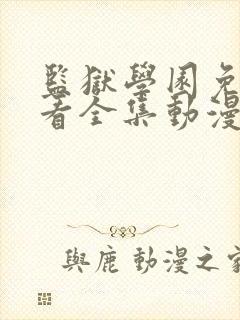 監獄學園免
看全集動漫
與鹿 動漫之家